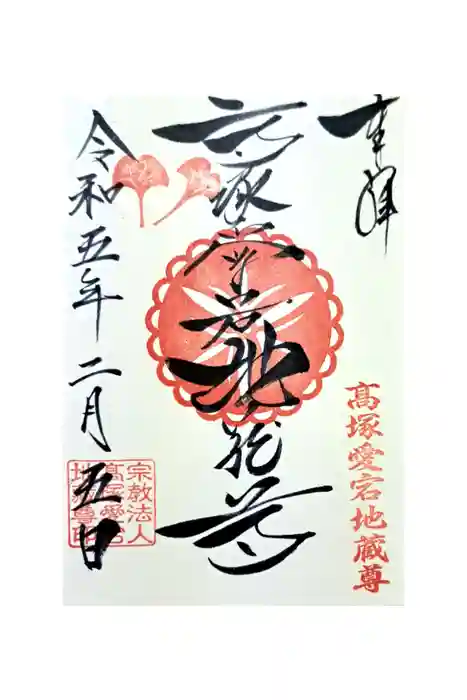 奉拝
髙塚愛宕地蔵尊
髙塚愛宕地蔵尊
令和五年二月五日
宗教法人
髙塚愛宕
地蔵尊印